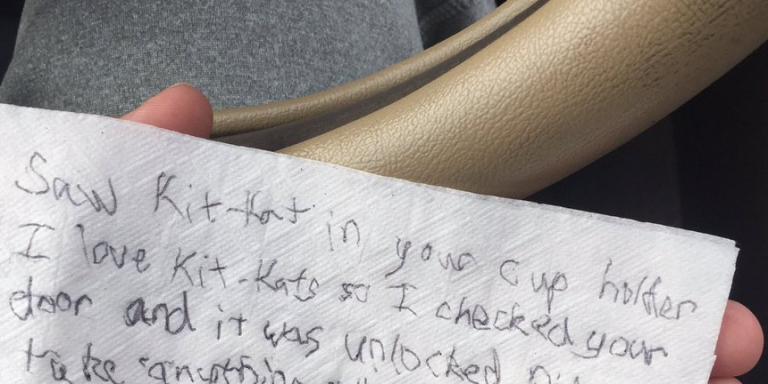 Saw Kit-Kat in your cup holder
I love Kit-Kats so I checked your
door and it was unlocked
take anything